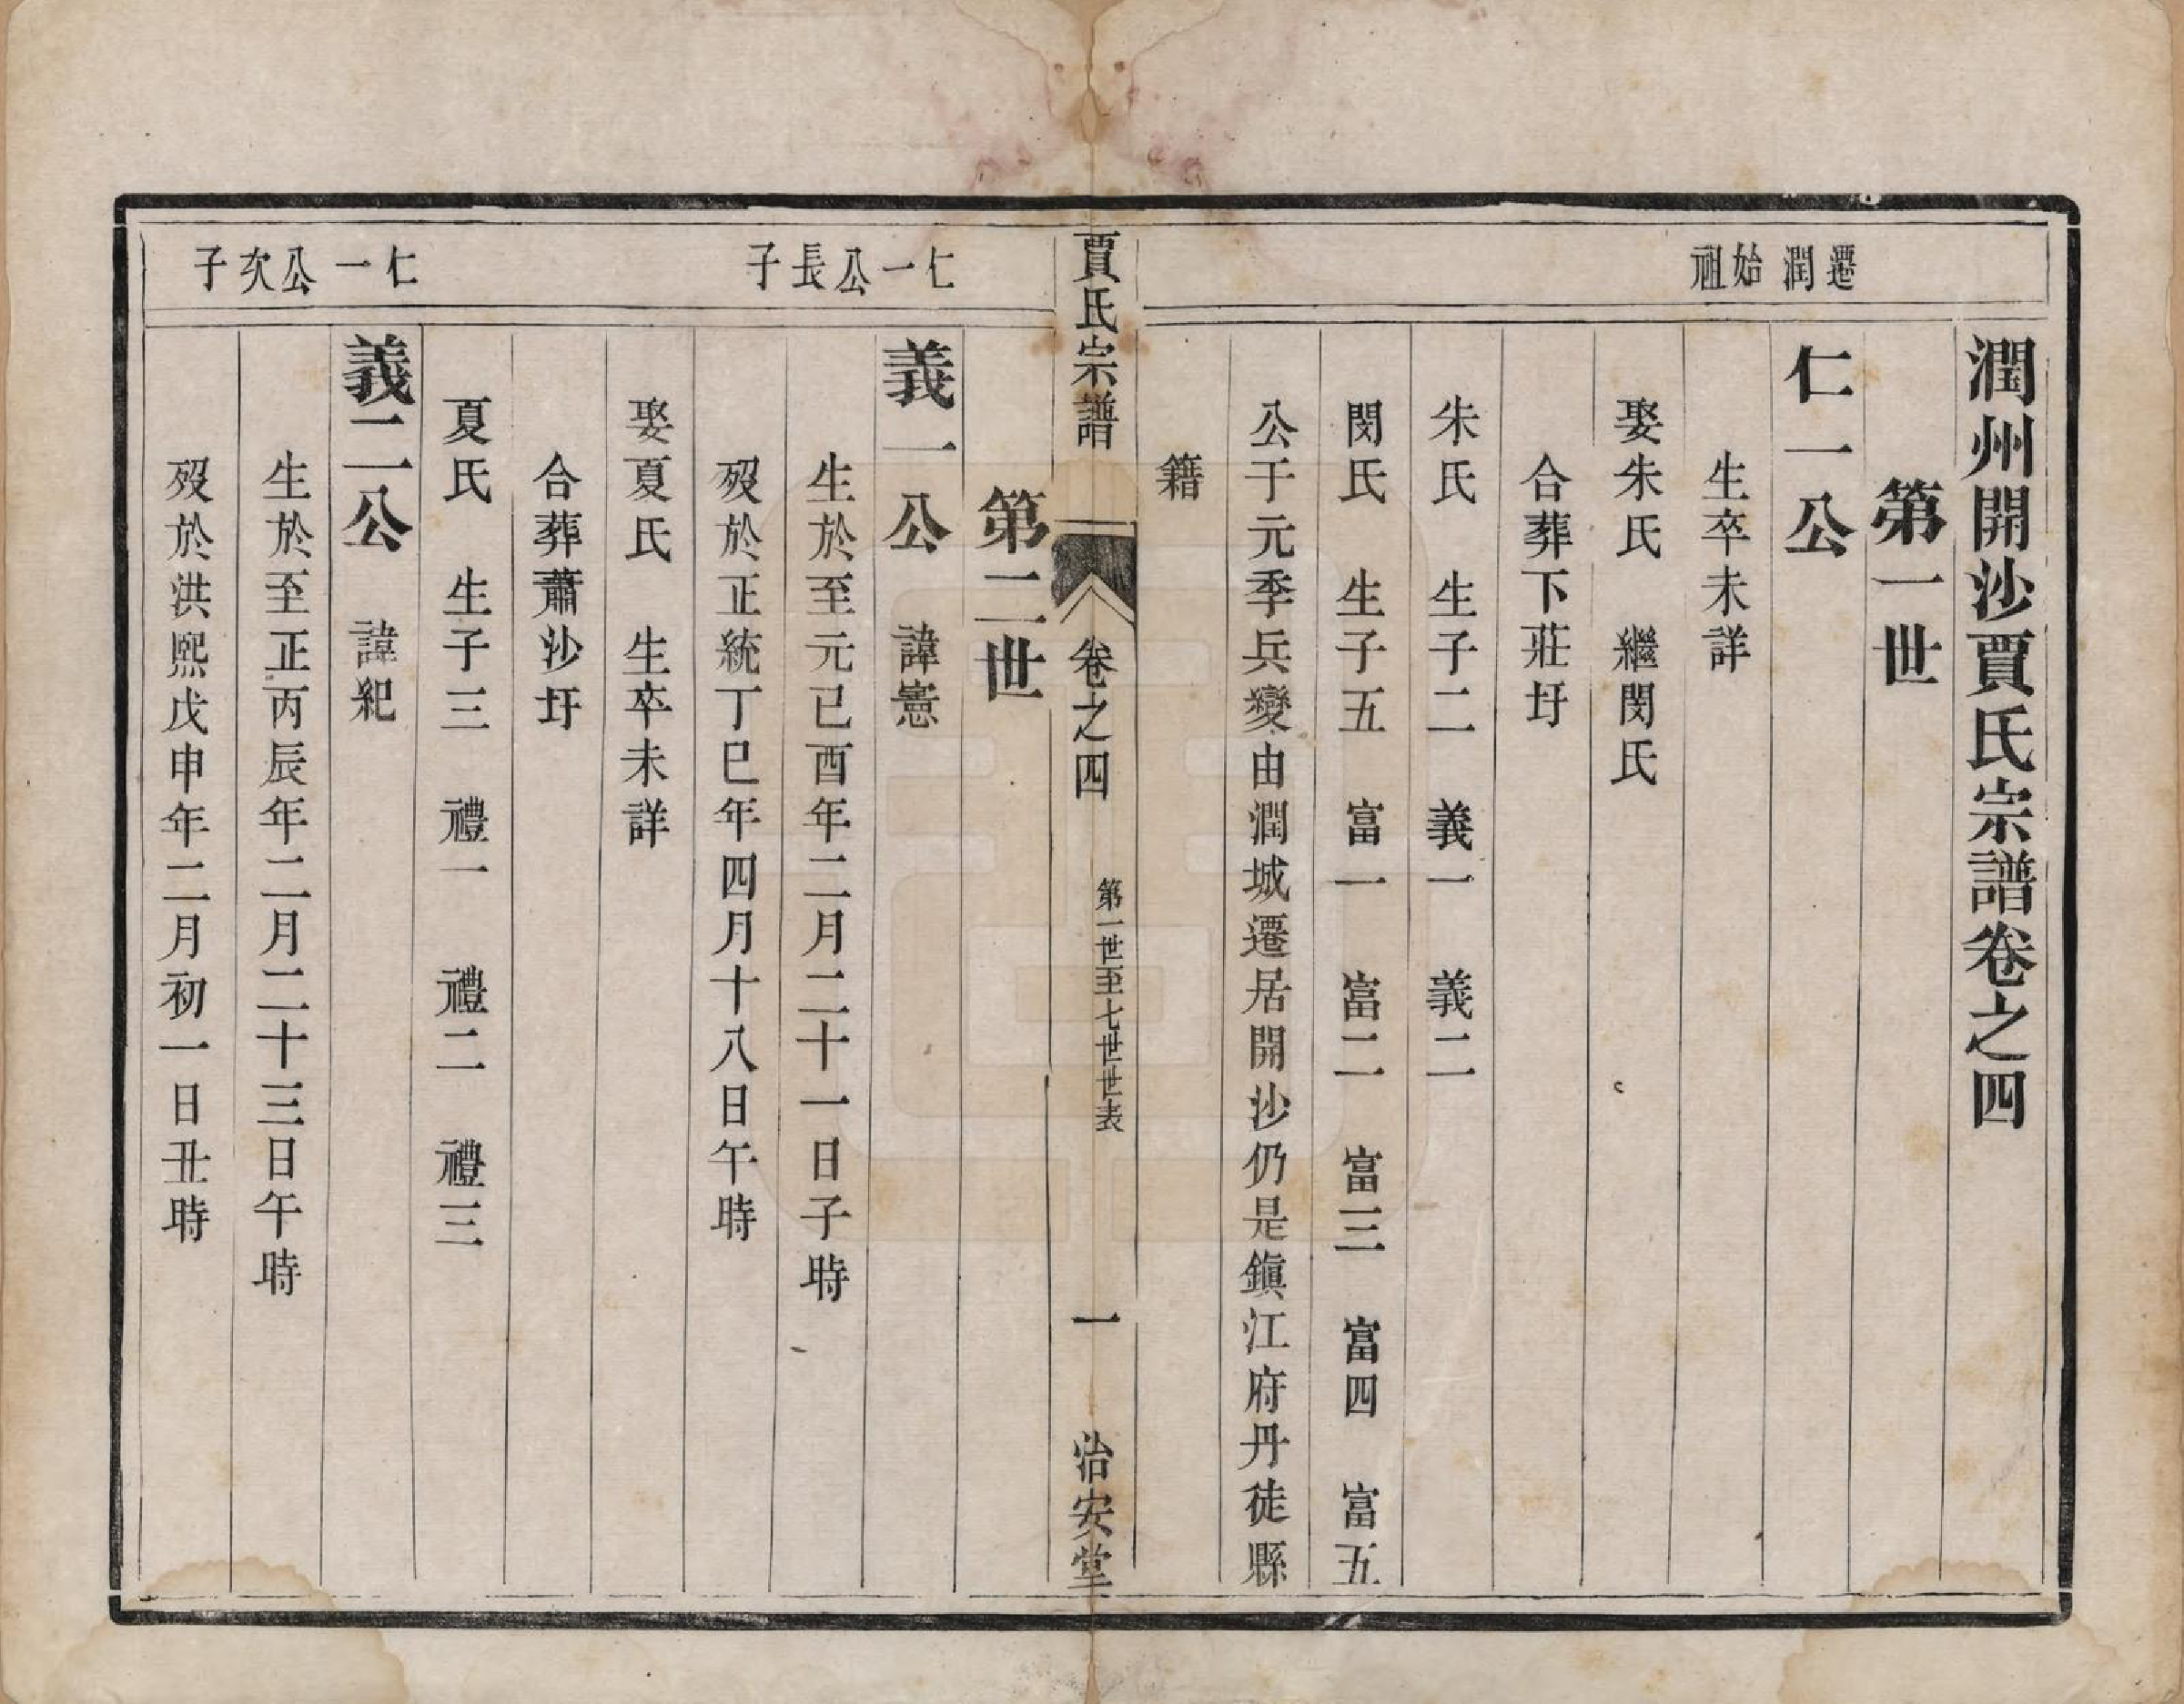 潤州開沙賈氏宗譜卷之四
第一世
遷潤始祖
仁一公
生卒未詳
娶朱氏 繼閔氏
合葬下莊圩
朱氏 生子二 義一 義二
閔氏 生子五 富一 富二 富三 富四 富五
公于元季兵變由潤城遷居開沙仍是鎭江府丹徒縣
籍
賈氏宗譜 卷之四 第一世至七世世表 一 治安堂
第二世
仁一公長子
義一公 諱憲
生於至元已酉年二月二十一日子時
歿於正統丁巳年四月十八日午時
娶夏氏 生卒未詳
合葬蕭沙圩
夏氏 生子三 禮一 禮二 禮三
仁一公次子
義二公 諱紀
生於至正丙辰年二月二十三日午時
歿於洪熙戊申年二月初一日丑時